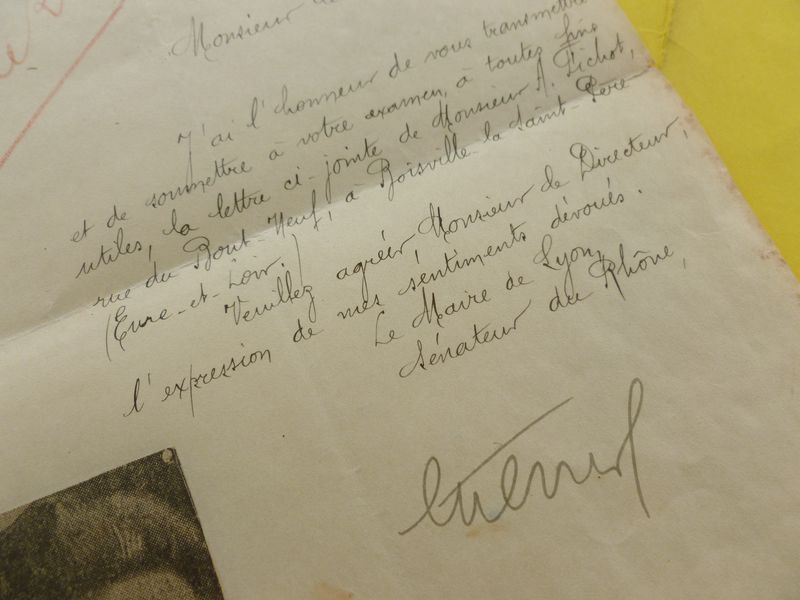 Monsieur
J'ai l'honneur de vous transmettre
et de soumettre à votre examen, à toutes fins
utiles, la lettre ci-jointe de Monsieur A. Pichot,
rue du Bout-Neuf, à Boisville-la-Saint-Père
(Eure-et-Loir.)
Veuillez agréer, Monsieur de Directeur,
l'expression de mes sentiments dévoués.
Le Maire de Lyon,
Sénateur du Rhône,